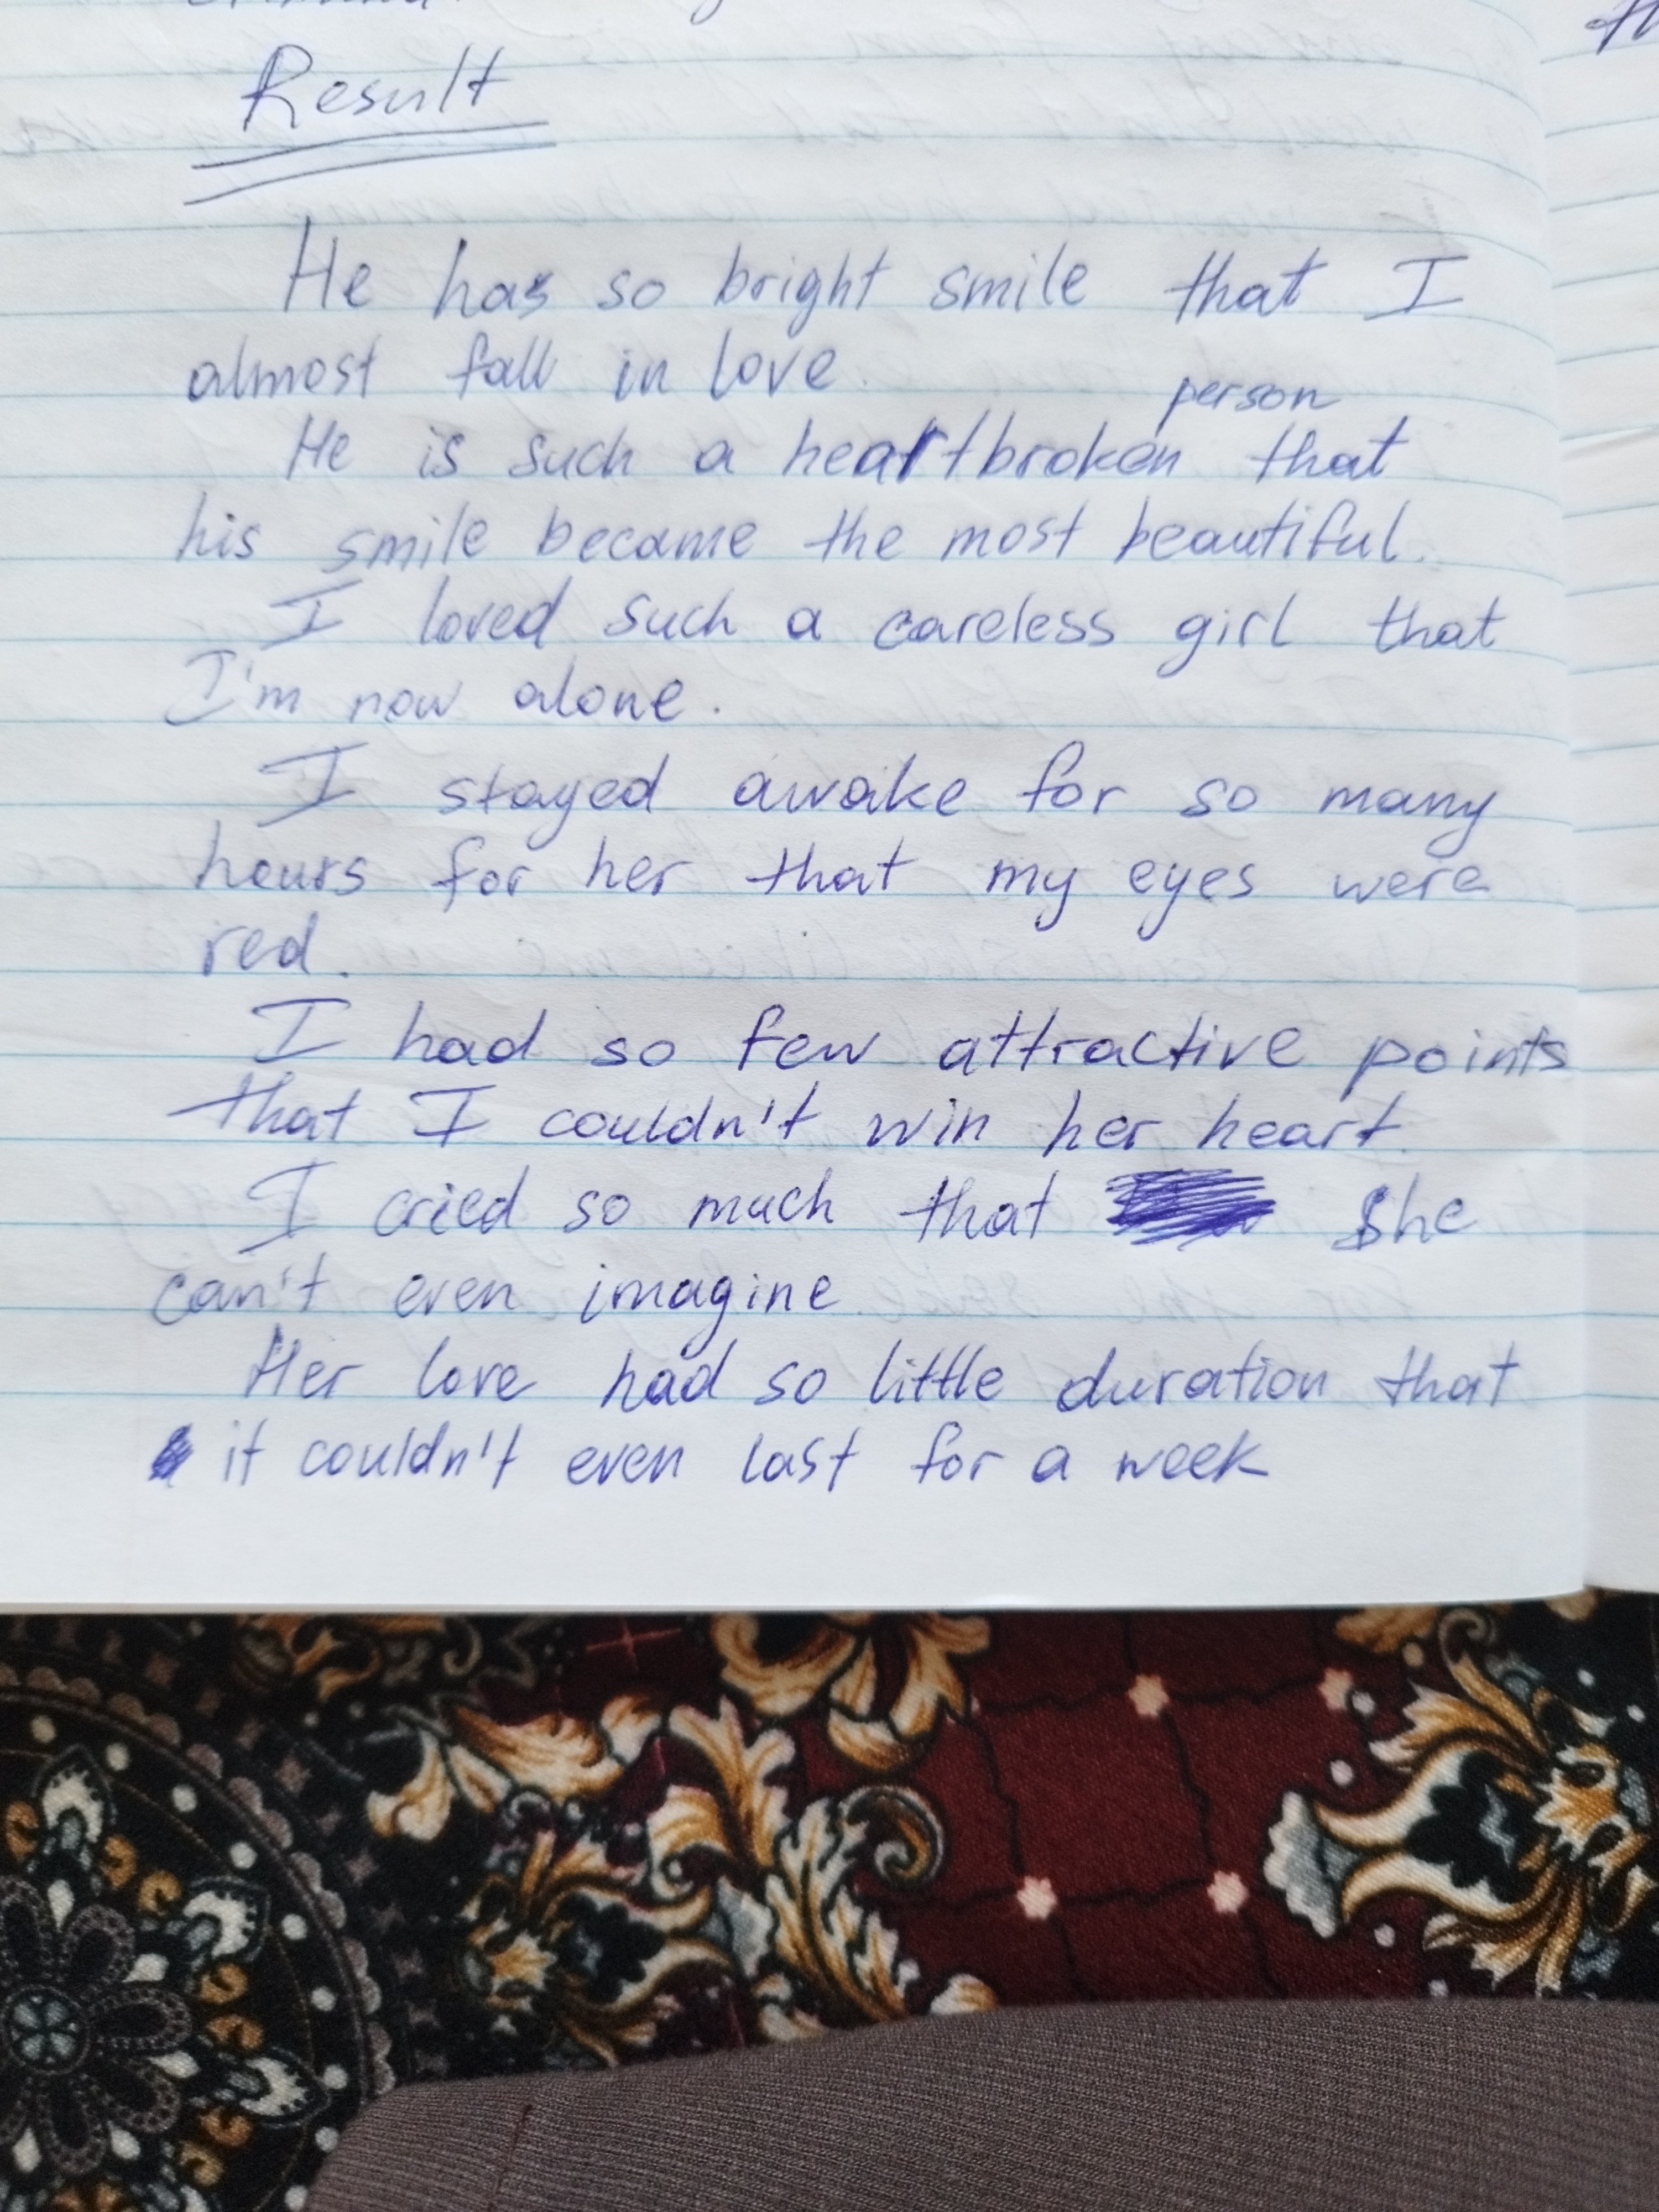 Result
He has so bright smile that I
almost fall in love.
person
He is such a heartbroken that
his smile became the most beautiful.
I loved such a careless girl that
I'm now alone.
I stayed awake for so many
hours for her that my eyes were
red.
I had so few attractive points
that I couldn't win her heart.
I cried so much that She
can't even imagine.
Her love had so little duration that
it couldn't even last for a week